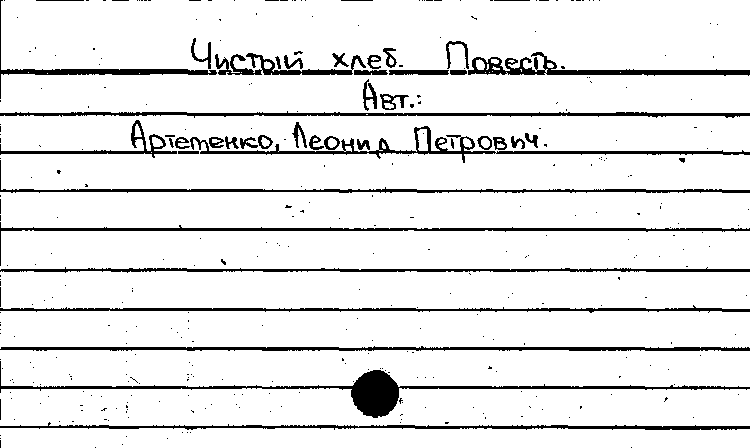 Чистый хлеб. Повесть.
Авт.:
Артеменко, Леонид Петрович.